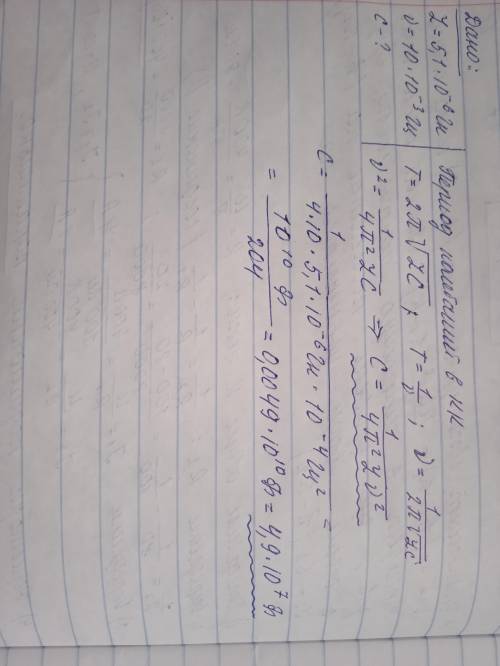 Дано:
L = 5,1·10⁻⁶ Гн
ν = 10·10⁻³ Гц
C - ?
Период колебаний в КК
T = 2π√LC ; T = 1/ν ; ν = 1/2π√LC
ν² = 1/4π²LC ⇒ C = 1/4π²Lν²
C = 1/4·10·5,1·10⁻⁶ Гн·10⁻⁴ Гц² =
= 10¹⁰ Ф/204 = 0,0049·10¹⁰ Ф = 4,9·10⁷ Ф